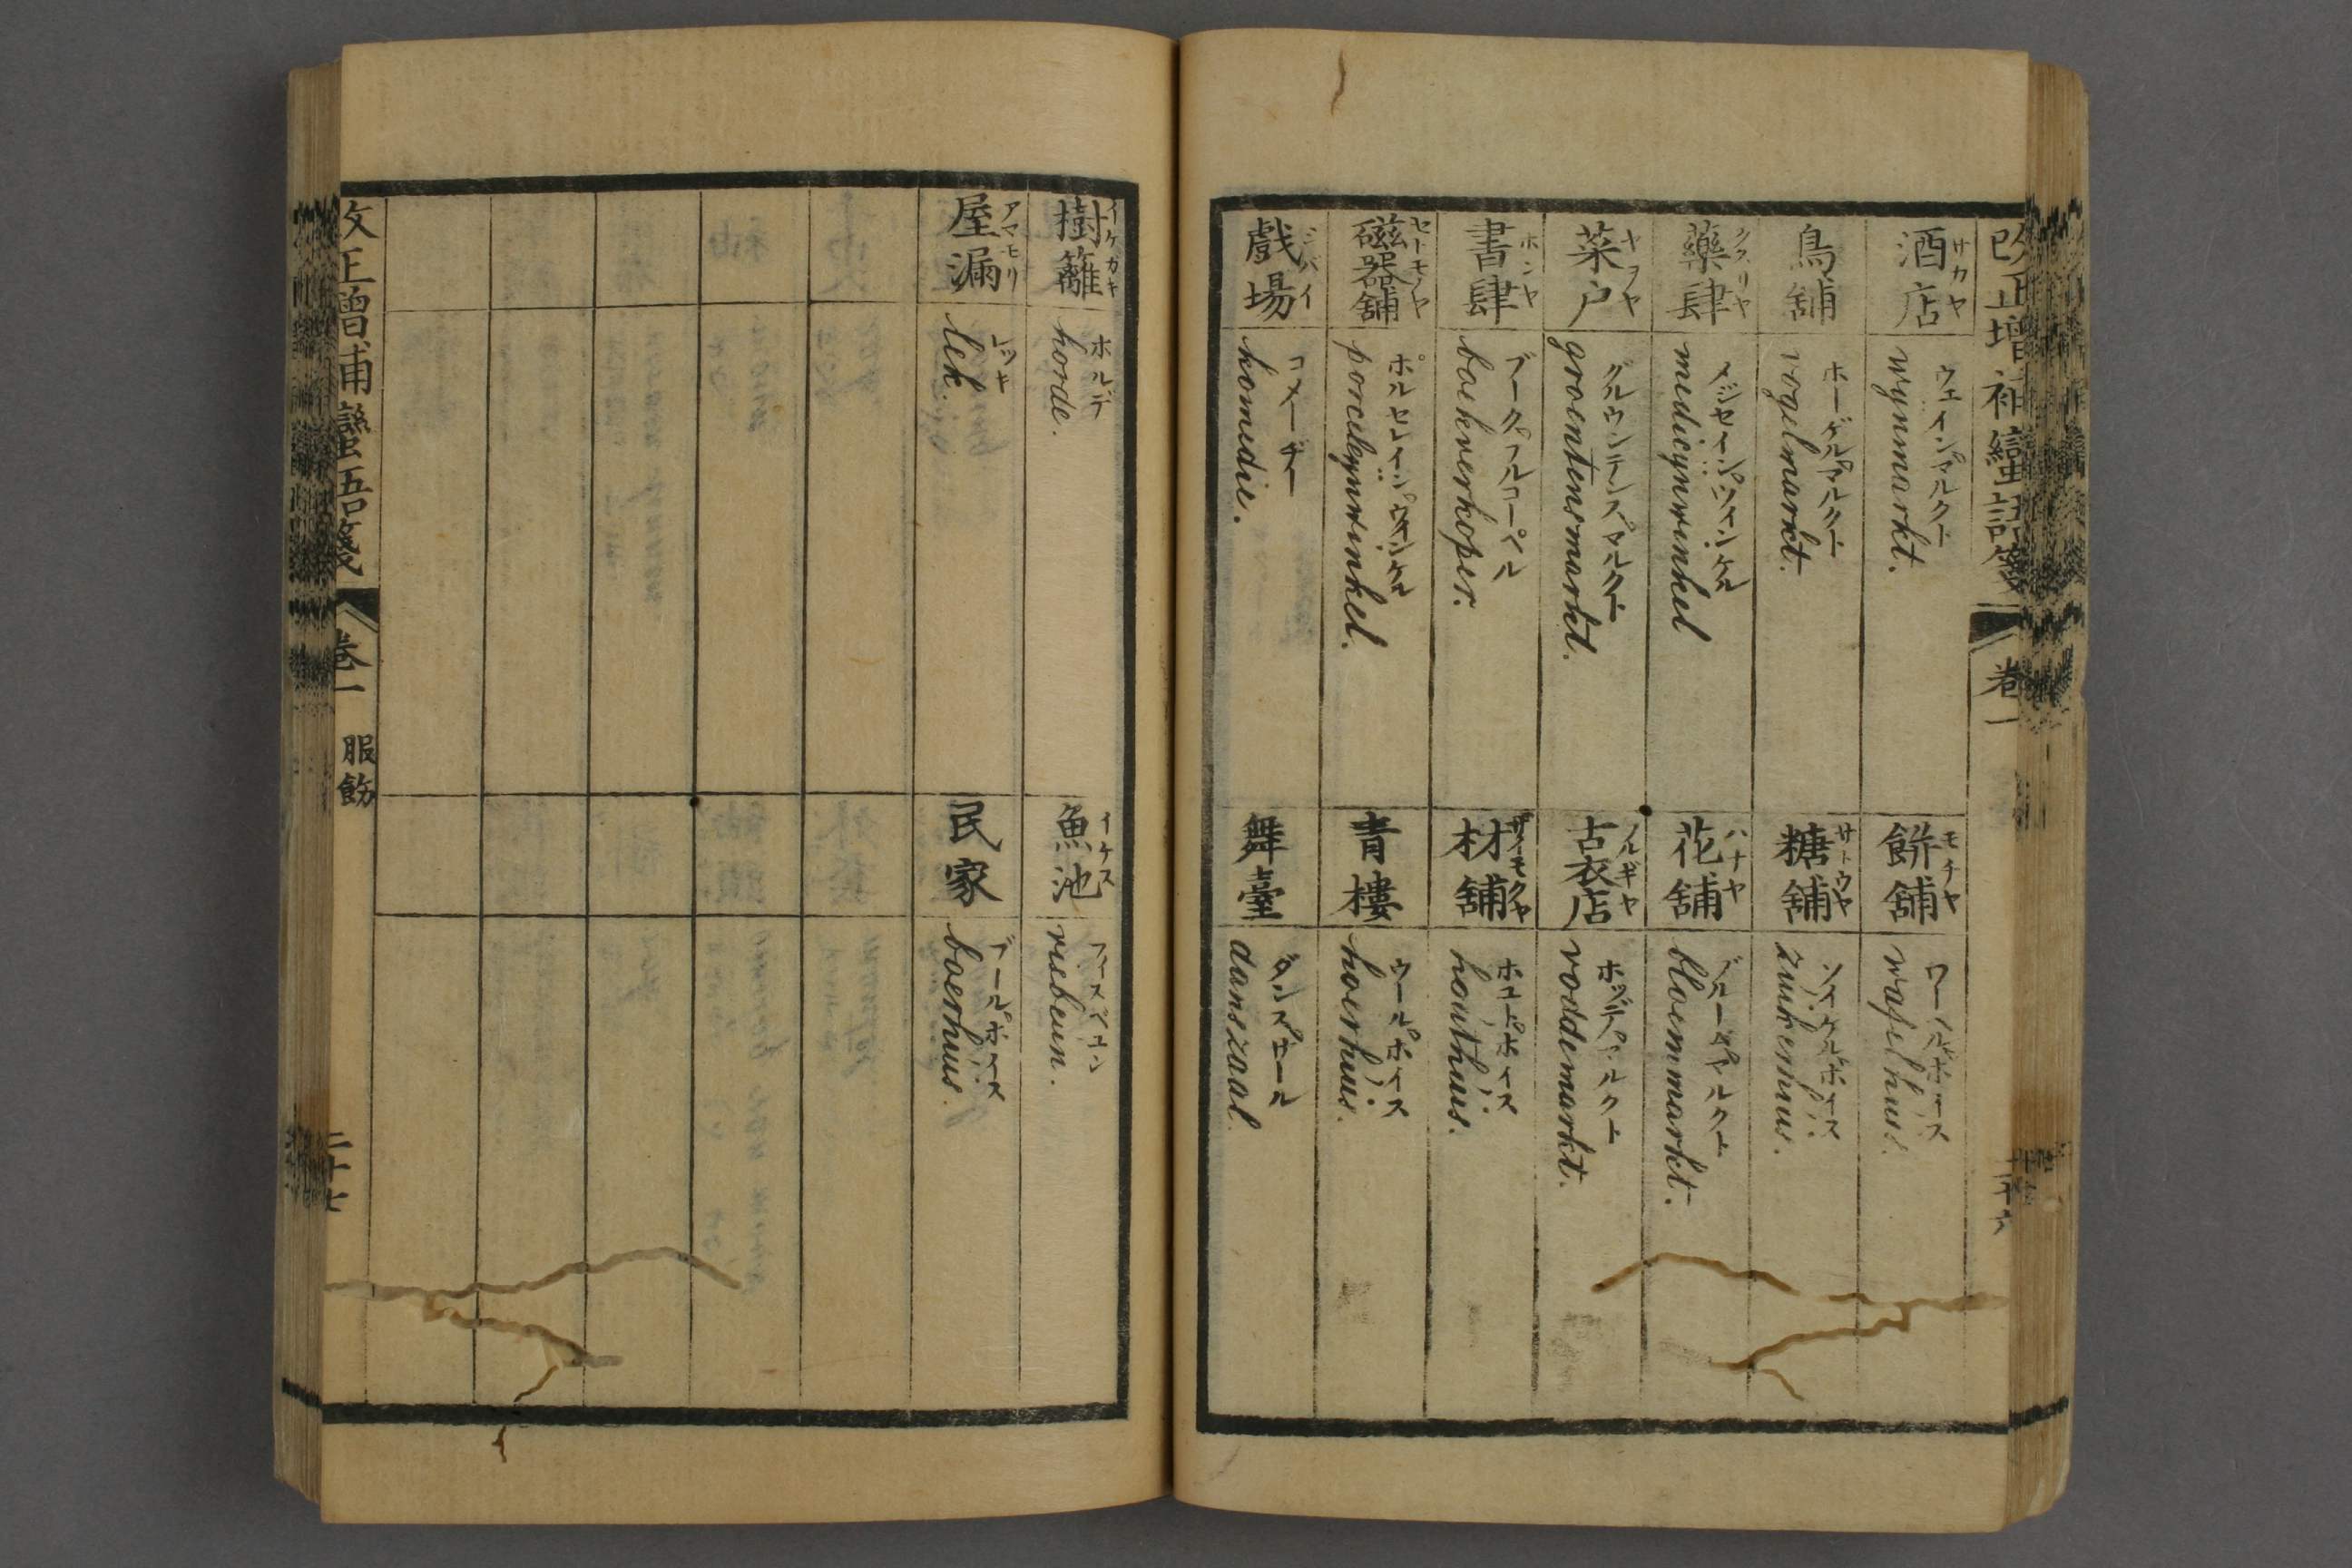 改正増補蠻語箋
卷一
酒店 サカヤ
ウェインマルクト
wynmarkt.
餅舖 モチヤ
wafelhuis.
鳥舖
ホーゲルマルクト
vogelmarkt.
糖舖 サトウヤ
ソイケルホイス
zuikerhuis.
藥肆 クスリヤ
メジセインウィンケル
medicynwinkel
花舖 ハナヤ
ブルームマルクト
bloemmarkt.
菜戸 ヤヲヤ
グルウンテンスマルクト
groentensmarkt.
古衣店 フルギヤ
ホッデマルクト
voddemarkt.
書肆 ホンヤ
ブークフルコーペル
boekverkoper.
材舖 ザイモクヤ
ホユトホイス
houthuis.
磁器舖 セトモノヤ
ポルセレインウィンケル
porceleynwinkel.
青樓
ウールホイス
hoerhuis.
戲場 シバイ
コメーヂー
komedie.
舞臺
ダンスサール
danszaal.
樹籬 イケガキ
ホルデ
horde.
魚池 イケス
フィースベュン
visbeun.
屋漏 アマモリ
レッキ
lek.
民家
ブールホイス
boerhuis.
改正増補蠻語箋
卷一
服飭
二十七